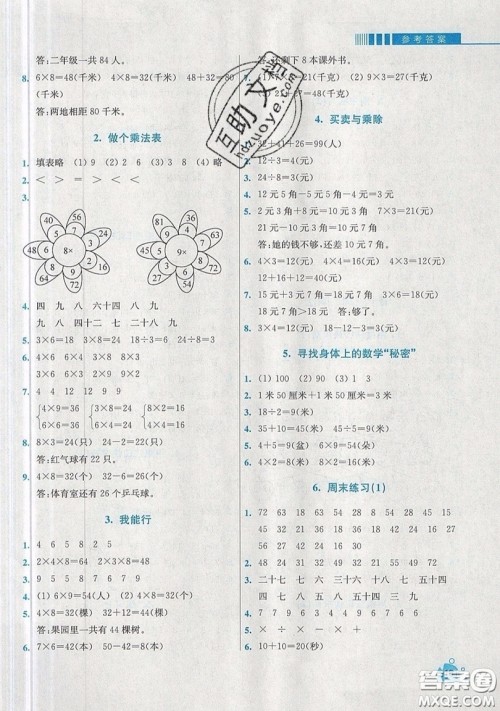 参考答案
答:二年级一共84人。
8. 6×8=48(千米) 4×8=32(千米) 48+32=80
(千米)
答:两地相距80千米。
2. 做个乘法表
1. 填表略 (1) 9 (2) 2 6 (3) 3 8 (4) 略
2. < > = < > <
3.
40 56 36 16 24 72 64 48
5 7 2 3 9 8 6
8×
81 54 63 27 72 36 45
9 6 7 4 8 3 5
9×
4. 四 九 八 六十四 八 九
九 八 四十二 七 二十八 九
5. 3×6=18 3×8=24 18÷3=6 24÷3=8
6. 4×6 6×4 3×8 8×3
6×6 4×9 3×2 2×3
7. 4 4 12 12 9 9
4×9=36 3×8=24 8×2=16
6×6=36 4×6=24 4×4=16
8. 8×3=24(只) 24-2=22(只)
答:红气球有22只。
9. 4×8=32(个) 32-6=26(个)
答:体育室还有26个乒乓球。
3. 我能行
1. 4 6 5 8 2 5
2. 2×4×6=48 2×3×8=48
3. 9 5 8 7 8 7 6 7 9
4. (1) 6×9=54(人) (2) 4×8=32(个)
5. 4×8=32(棵) 32+12=44(棵)
答:果园里一共有44棵树。
6. 7×6=42(本) 50-42=8(本)
答:还剩下8本课外书。
(2) 9×3=27(元)
4. 买卖与乘除
32+41+26=99(人)
2. 12÷3=4(元)
3. 24÷8=3(元)
4. 12元5角-5元4角=7元1角
5. 2元3角+8元7角=11元 7×3=21(元)
21元-11元=10元7角
答:她的钱不够,还差10元7角。
6. 4×3=12(元) 4×4=16(元) 6×2=12(元)
12+16+12=40(元)
7. 15元-3元7角=11元3角 6×3=18(元)
18元7角>18元 答:够。
8. 3×4=12(元) 18-12-3=3(元)
5. 寻找身体上的数学“秘密”
1. (1) 100 (2) 90 (3) 1 3
2. 1米50厘米+1米3厘米=2米53厘米
3. 18÷2=9(米)
4. 35+10=45(米) 5×9=45(米)
5. 4+5=9(盆) 6×9=54(朵)
6. 4×2=8(厘米) 8×4=32(厘米)
6. 周末练习(1)
1. 72 63 18 63 20 35 28 56 15
45 32 21 18 36 18 42 24 16 27
56 27 42 42 30 16 30
2. 48 24 31 49 32 48 21 55 49 72
3. 二十七 七 六 三十六 四 三 九 七
四 七 五 八 五十四 三十六 三 九
4. < = > < > > < >
5. × ÷ × - × +
6. 10+10=20(秒)
互助文档
hdzuoye.com
答案圈
MXQE.COM